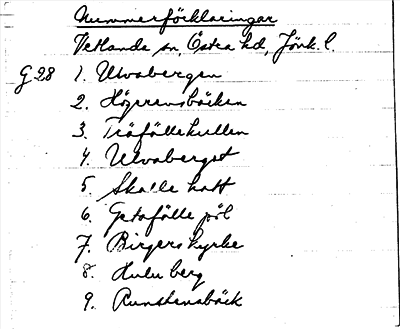 Nummerförklaringar
Vetlanda sn, Östra hd, Jönk. l.
G 28 1. Ulvabergen
2. Högrensbäcken
3. Träfällekullen
4. Ulvaberget
5. Skalle hatt
6. Getafälle pöl
7. Birgers kyrke
8. Hulu berg
9. Runstensbäck